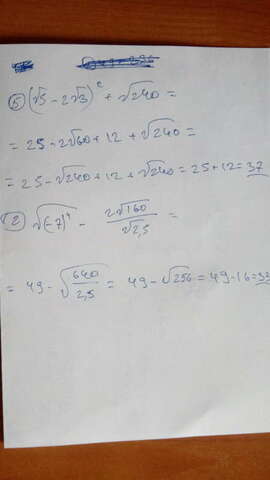 б) (√5 - 2√3)² + √240 =
= 25 - 2√60 + 12 + √240 =
= 25 - √240 + 12 + √240 = 25 + 12 = 37
2) √(-7)⁴ - 2√160 / √2,5 =
= 49 - √(640 / 2,5) = 49 - √256 = 49 - 16 = 33